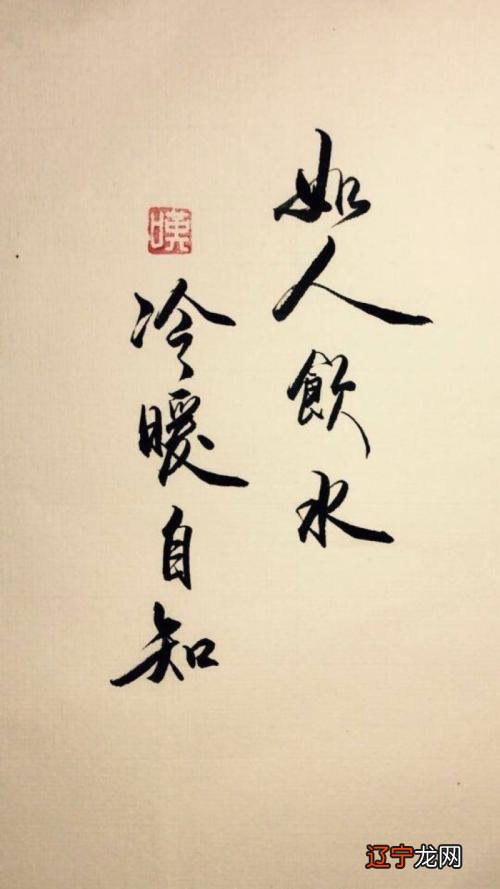 如人飲水
冷暖自知
嘆
辽宁龙网